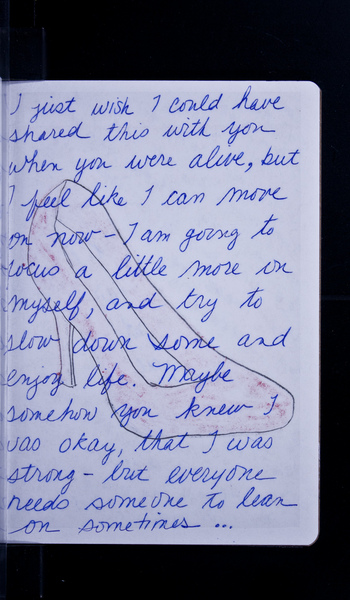 I just wish I could have
shared this with you
when you were alive, but
I feel like I can move
on now - I am going to
focus a little more on
myself, and try to
slow down some and
enjoy life. Maybe
somehow you knew I
was okay, that I was
strong - but everyone
needs someone to lean
on sometimes ...